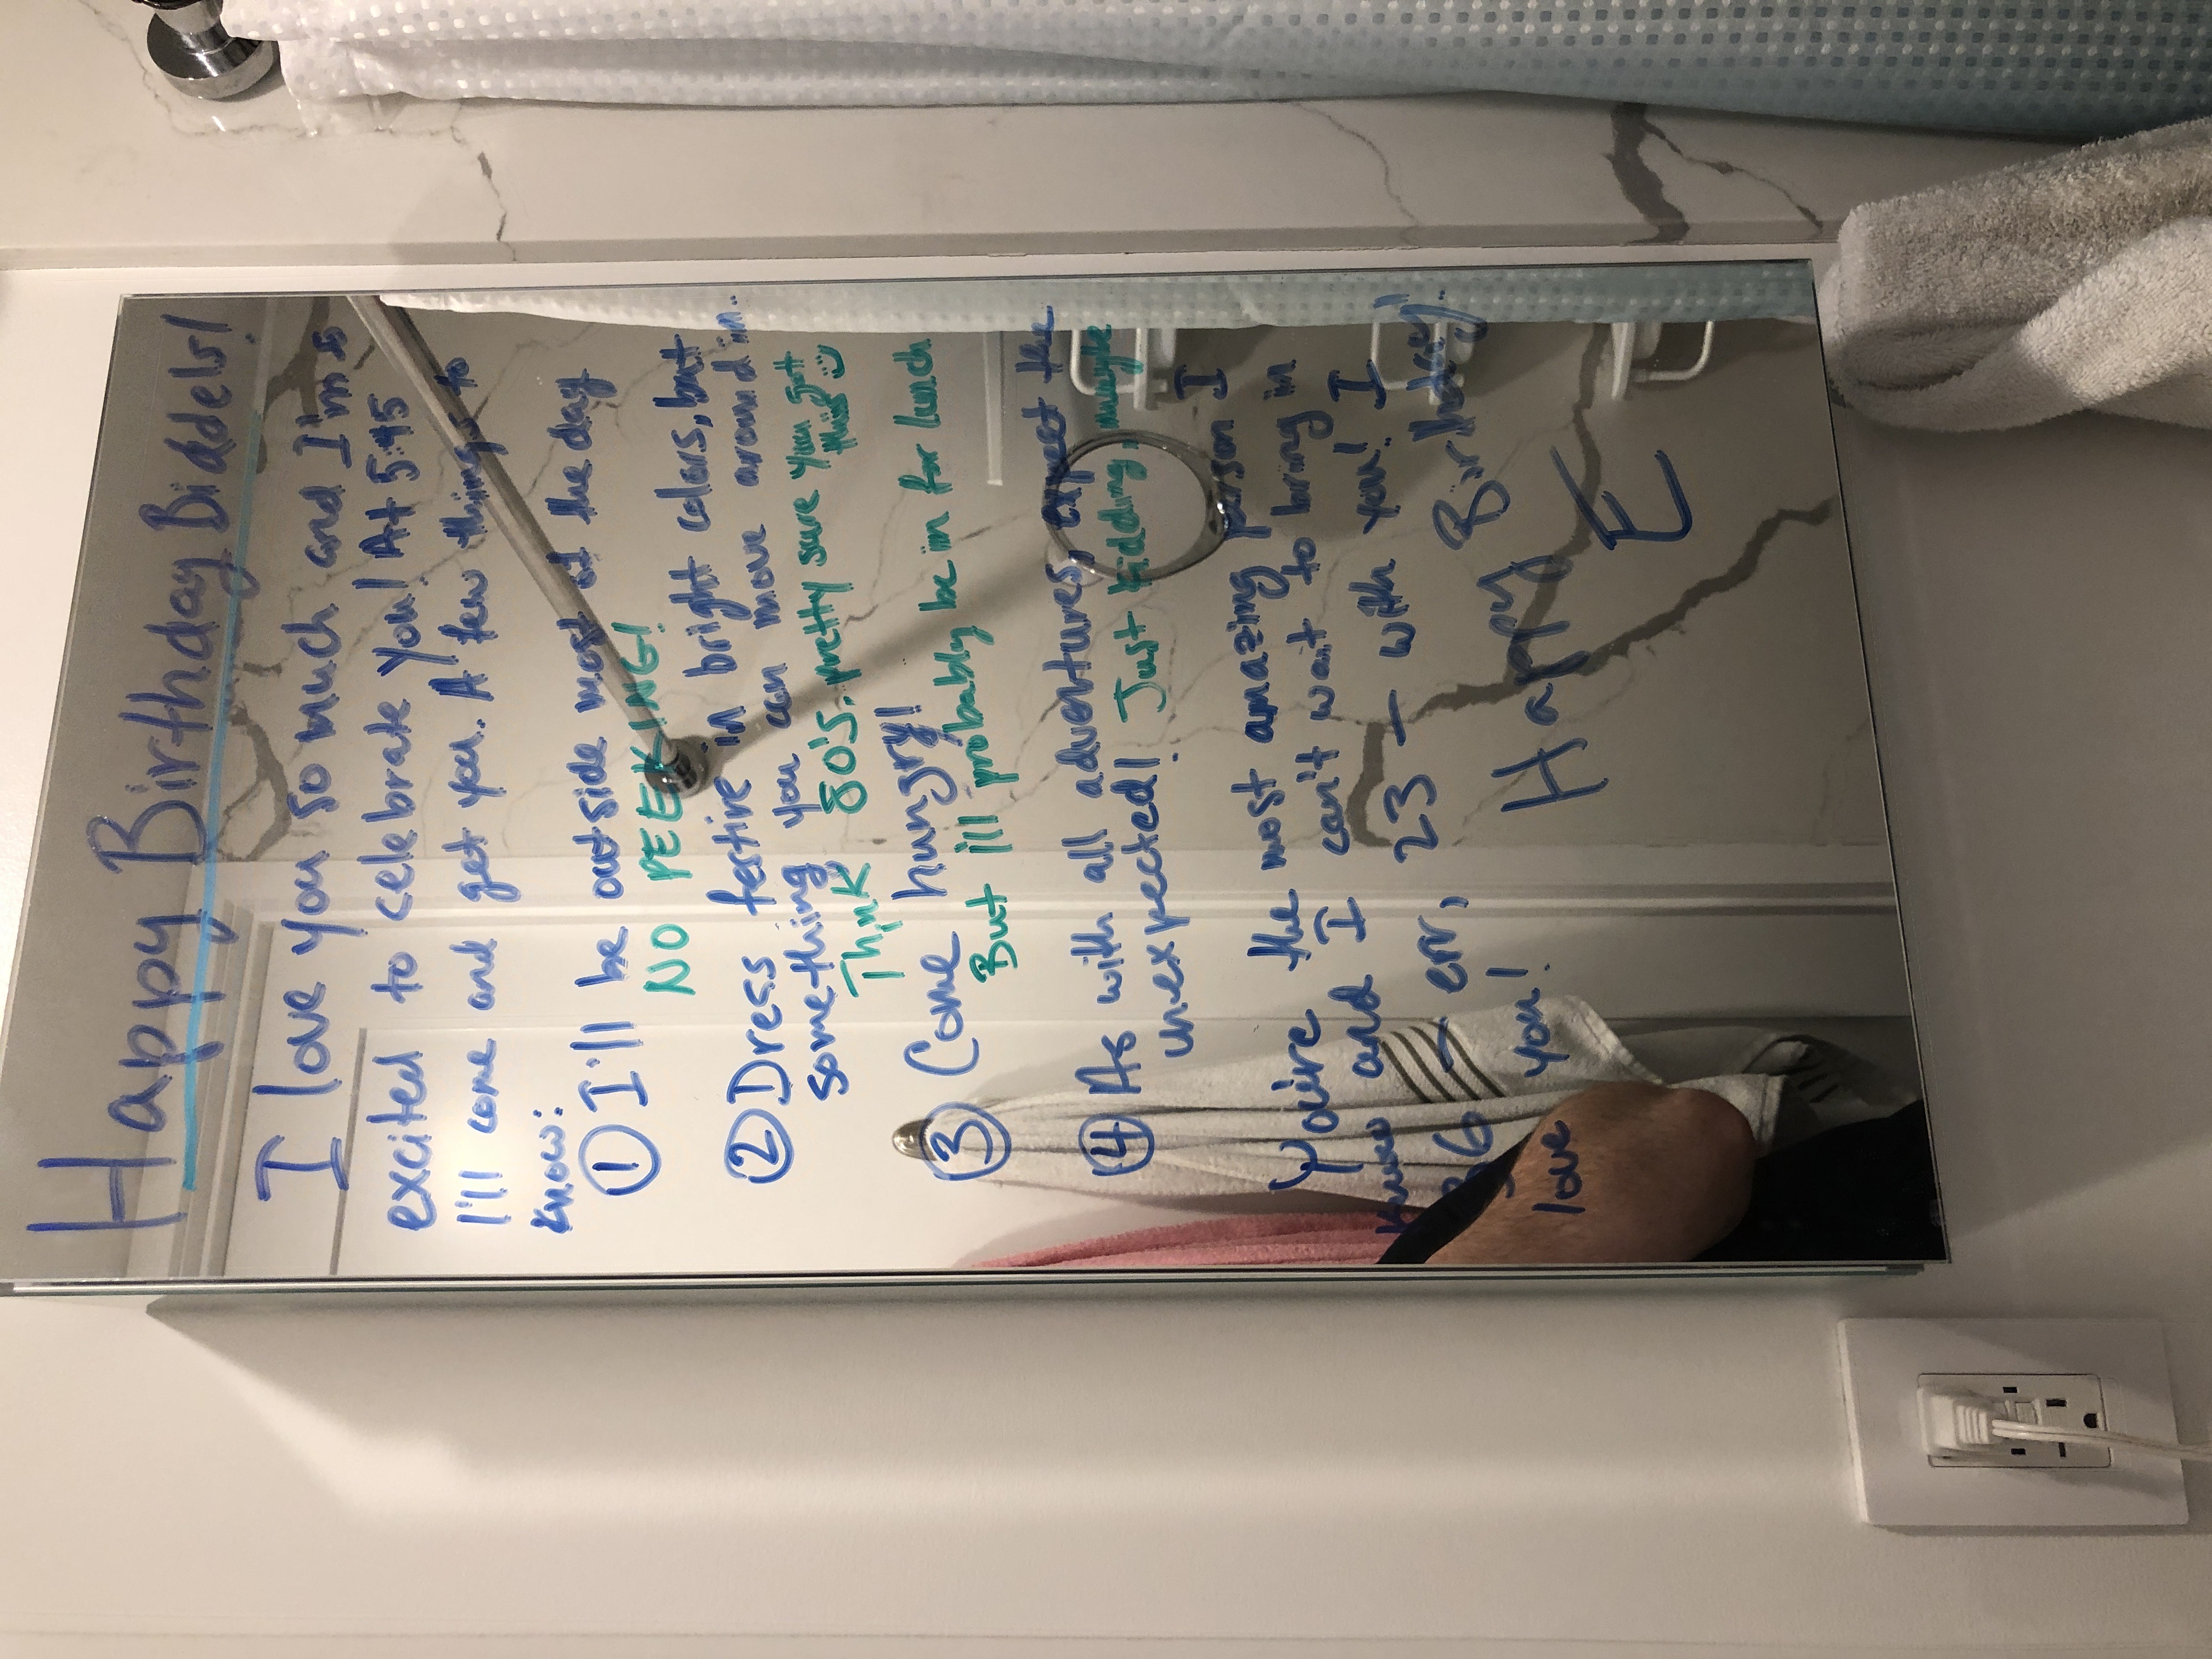 Happy Birthday Biddels!
I love you so much and I'm so
excited to celebrate you! At 5:45
I'll come and get you. A few things to
know:
① I'll be outside most of the day
NO PEEKING!
② Dress festive in bright colors, but
something you can move around in..
Think 80's. pretty sure you got
this ☺
③ Come hungry!
But i'll probably be in for lunch
④ As with all adventures, expect the
unexpected! Just kidding, maybe
You're the most amazing person I
know and I can't wait to bring in
36 – err, 23 – with you! I
love you!
Happy Birthday!
E